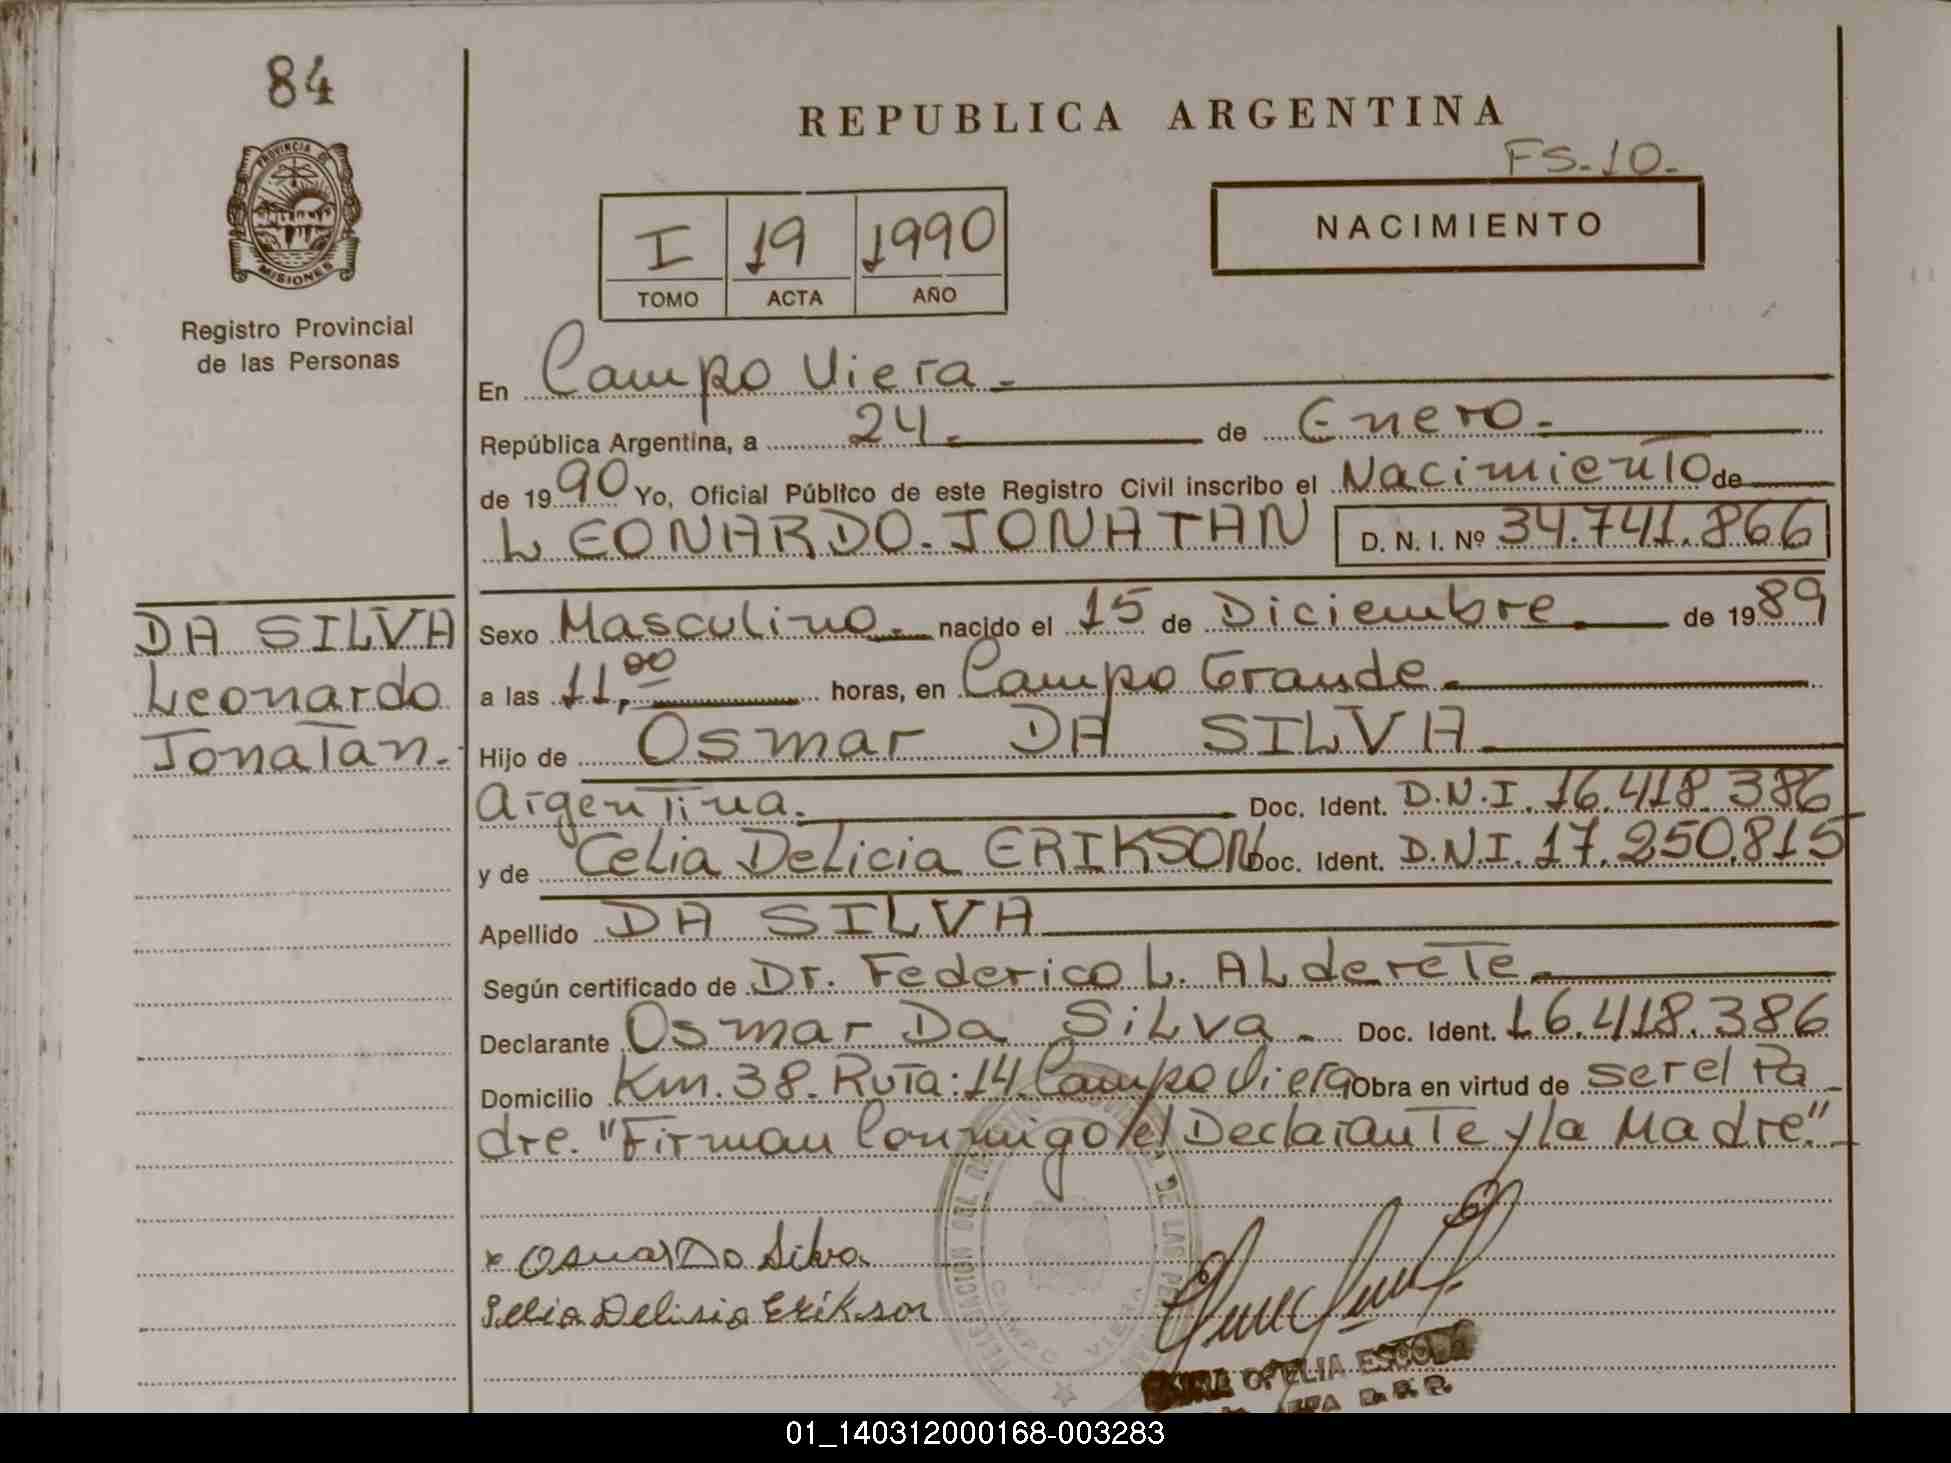 84
REPUBLICA ARGENTINA
FS.10.
PROVINCIA DE
MISIONES
Registro Provincial
de las Personas
I 19 1990
TOMO ACTA AÑO
NACIMIENTO
En Campo Viera.
República Argentina, a 24. de Enero.
de 1990 Yo, Oficial Público de este Registro Civil inscribo el Nacimiento de
LEONARDO. JONATAN D. N. I. Nº 34.741.866
DA SILVA
Leonardo
Jonatan.
Sexo Masculino. nacido el 15 de Diciembre. de 1989
a las 11,00 horas, en Campo Grande.
Hijo de Osmar DA SILVA
Argentina. Doc. Ident. D.N.I. 16.418.386
y de Celia Delicia ERIKSON Doc. Ident. D.N.I. 17.250.815
Apellido DA SILVA
Según certificado de Dr. Federico L. Alderete.
Declarante Osmar Da Silva. Doc. Ident. 16.418.386
Domicilio Km. 38. Ruta: 14. Campo Viera Obra en virtud de ser el Pa
dre. "Firman Conmigo el Declarante y la Madre."
x Osmar Da Silva
Celia Delisia Erikson
CAMPO VIERA
OFELIA
01_140312000168-003283